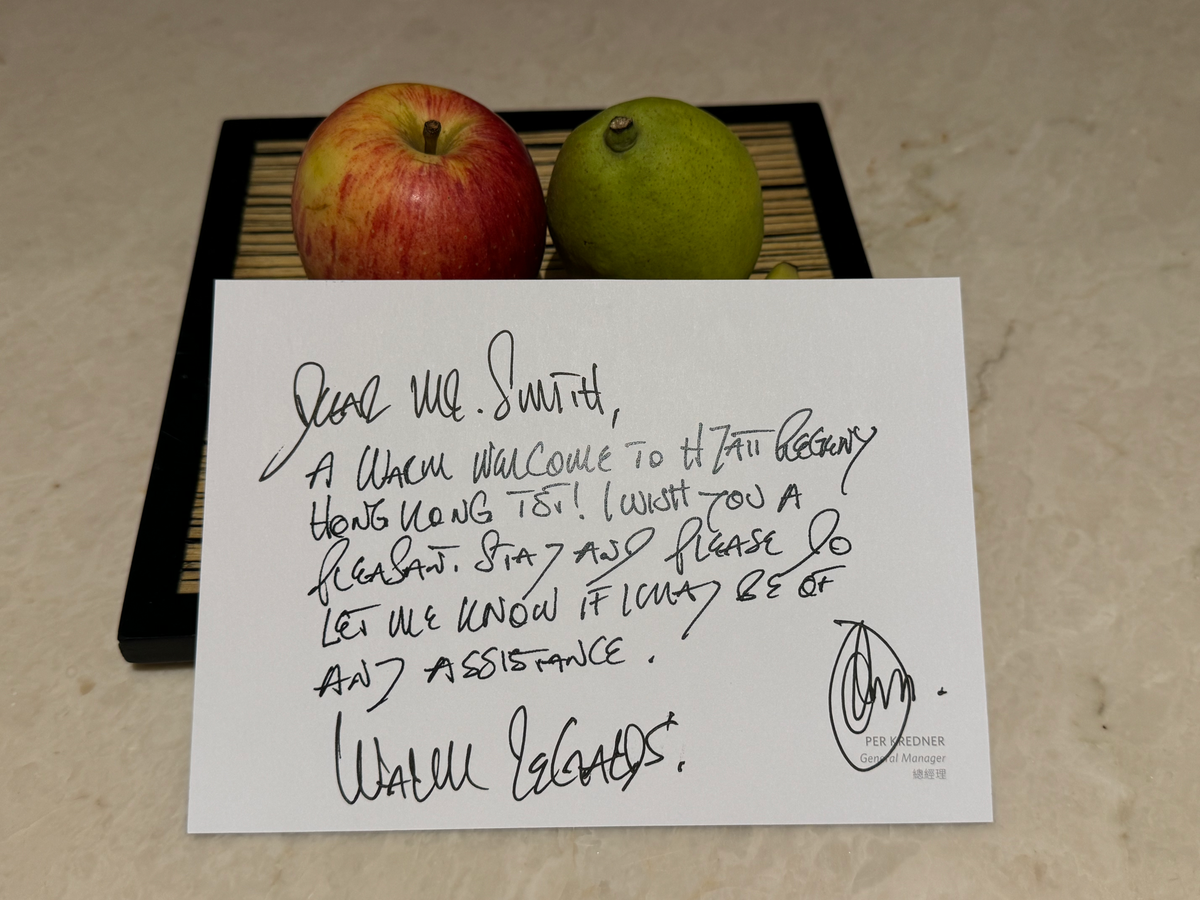 DEAR MR. SMITH,
A WARM WELCOME TO HYATT REGENCY
HONG KONG TST! I WISH YOU A
PLEASANT STAY AND PLEASE DO
LET ME KNOW IF I MAY BE OF
ANY ASSISTANCE.
WARM REGARDS.
PER KREDNER
General Manager
總經理